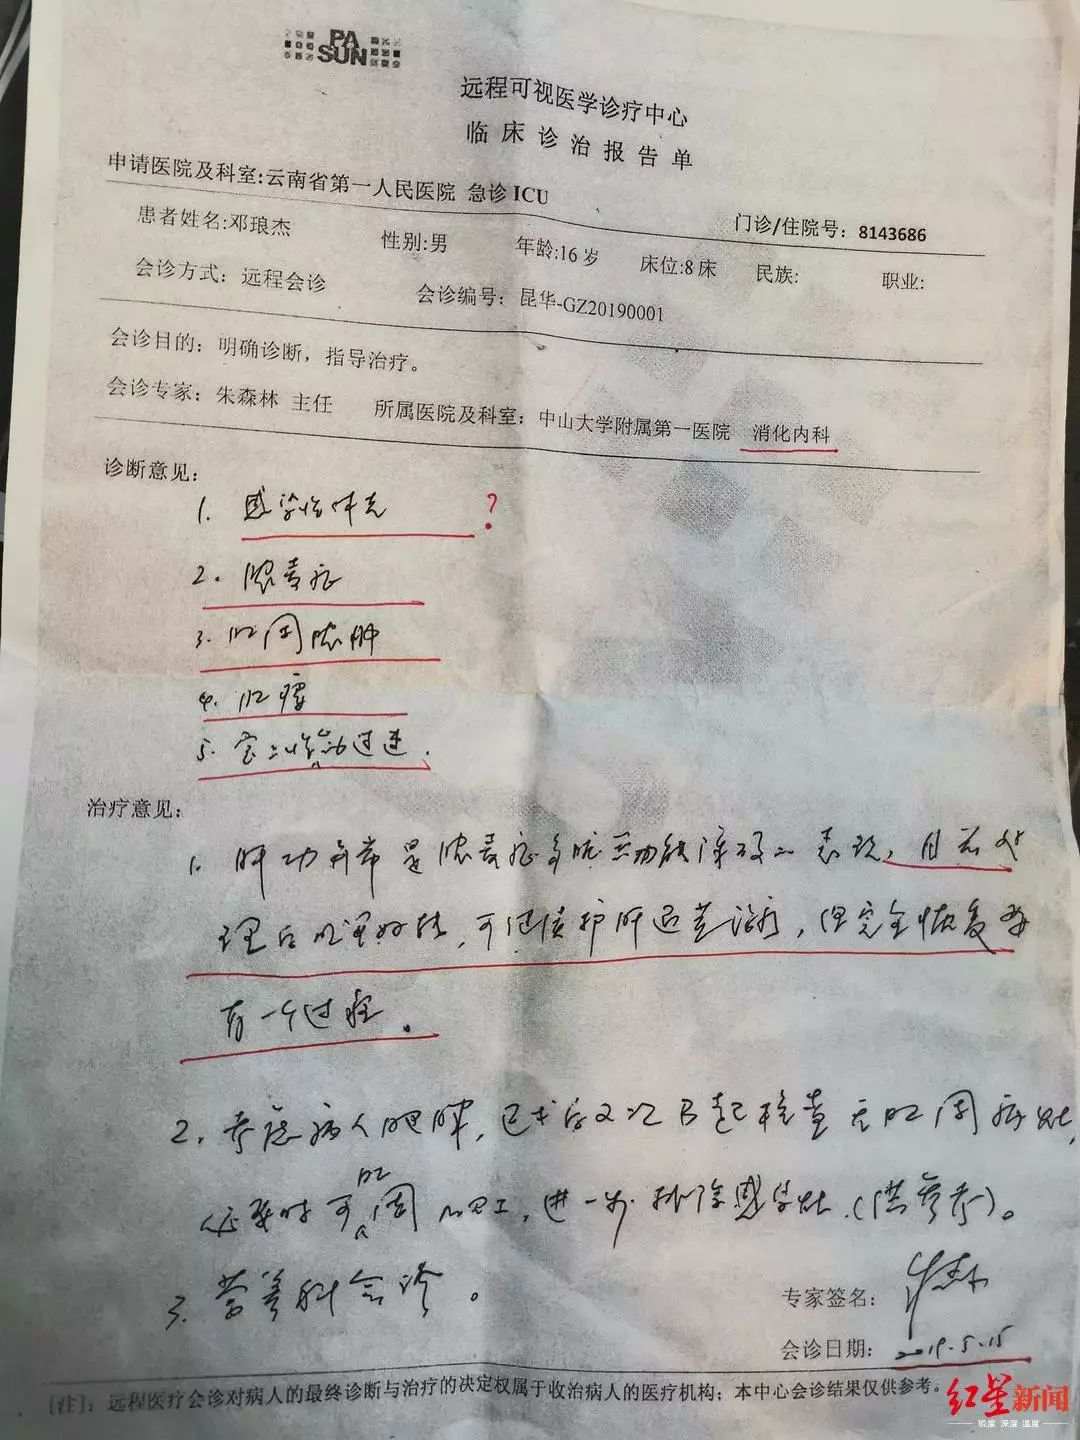 PA
SUN
远程可视医学诊疗中心
临床诊治报告单
申请医院及科室:云南省第一人民医院 急诊ICU
门诊/住院号：8143686
患者姓名:邓琅杰 性别:男 年龄:16岁 床位:8床 民族: 职业:
会诊方式：远程会诊 会诊编号：昆华-GZ20190001
会诊目的：明确诊断，指导治疗。
会诊专家：朱森林 主任 所属医院及科室：中山大学附属第一医院 消化内科
诊断意见：
1. 感染性休克 ?
2. 脓毒症
3. 肛周脓肿
4. 肛瘘
5. 室性心动过速.
治疗意见：
1. 肝功异常是脓毒症多脏器功能障碍之表现，目前处
理后明显好转，可继续护肝退黄治疗，但完全恢复要
有一个过程。
2. 考虑病人肥胖，已术后又次B超检查无肛周病灶，
必要时可肛周MRI，进一步排除感染灶.(供参考)。
3. 营养科会诊。
专家签名：
会诊日期：2019.5.15
[注]：远程医疗会诊对病人的最终诊断与治疗的决定权属于收治病人的医疗机构；本中心会诊结果仅供参考。
红星新闻
锐度 深度 温度